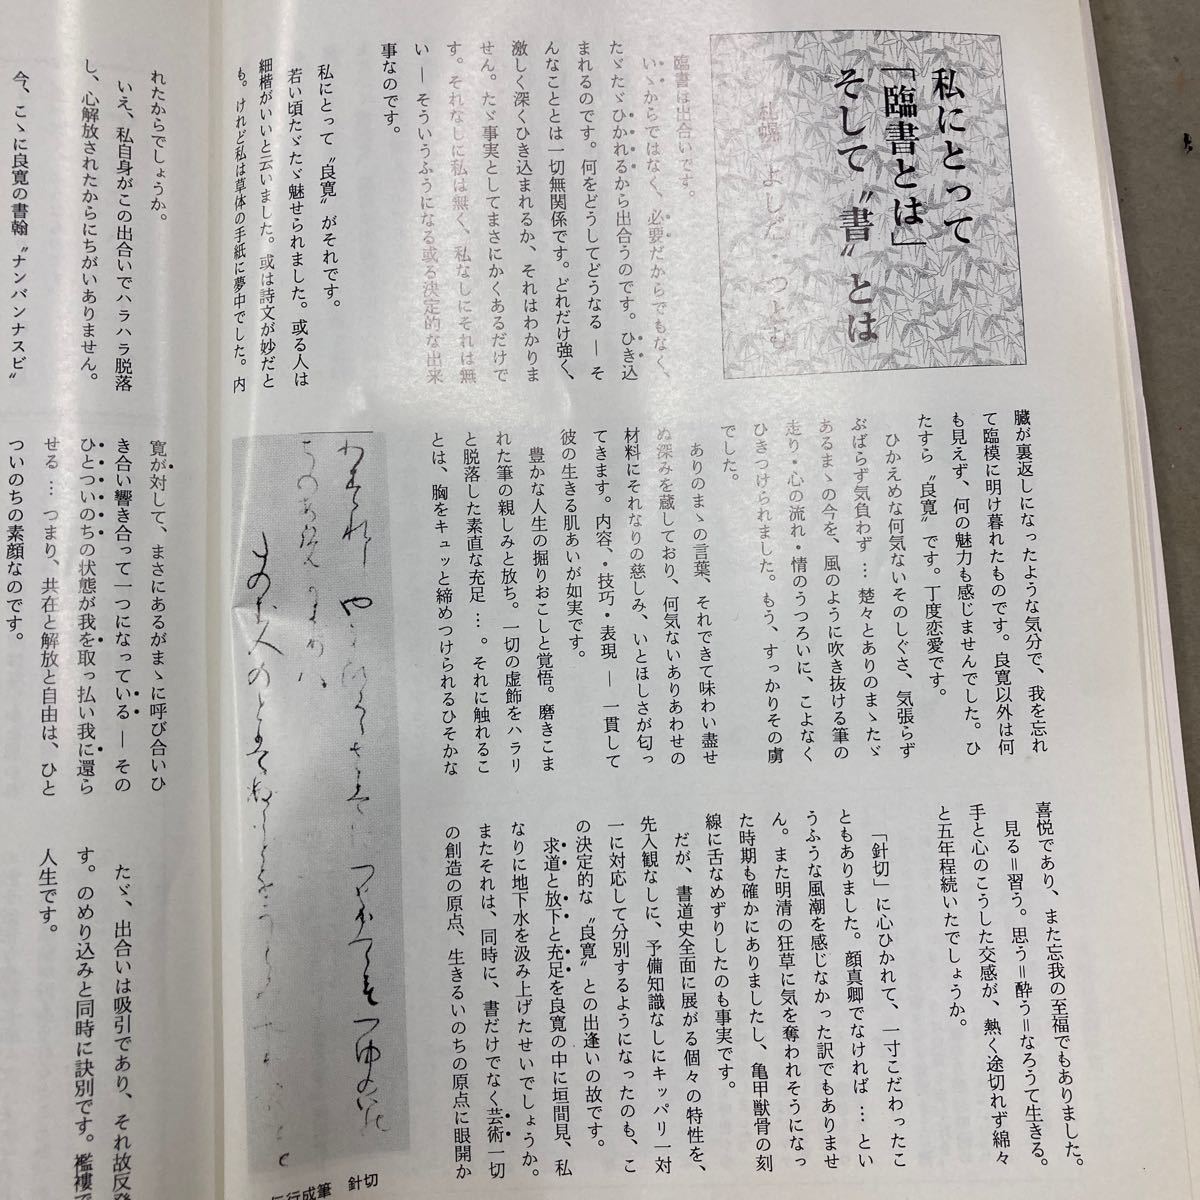 私にとって
「臨書とは」
そして〝書〟とは
よしだ・つとむ
臨書は出合いです。
いゝからではなく、必要だからでもなく、
たゞたゞひかれるから出合うのです。ひき込
まれるのです。何をどうしてどうなる ― そ
んなこととは一切無関係です。どれだけ強く、
激しく深くひき込まれるか、それはわかりま
せん。たゞ事実としてまさにかくあるだけで
す。それなしに私は無く、私なしにそれは無
い ― そういうふうになる或る決定的な出来
事なのです。
私にとって〝良寛〟がそれです。
若い頃たゞたゞ魅せられました。或る人は
細楷がいいと云いました。或は詩文が妙だと
も。けれど私は草体の手紙に夢中でした。内
臓が裏返しになったような気分で、我を忘れ
て臨模に明け暮れたものです。良寛以外は何
も見えず、何の魅力も感じませんでした。ひ
たすら〝良寛〟です。丁度恋愛です。
ひかえめな何気ないそのしぐさ、気張らず
ぶばらず気負わず…楚々とありのまゝたゞ
あるまゝの今を、風のように吹き抜ける筆の
走り・心の流れ・情のうつろいに、こよなく
ひきつけられました。もう、すっかりその虜
でした。
ありのまゝの言葉、それできて味わい盡せ
ぬ深みを蔵しており、何気ないありあわせの
材料にそれなりの慈しみ、いとほしさが匂っ
てきます。内容、・技巧・表現 ― 一貫して
彼の生きる肌あいが如実です。
豊かな人生の掘りおこしと覚悟。磨きこま
れた筆の親しみと放ち。一切の虚飾をハラリ
と脱落した素直な充足…。それに触れるこ
とは、胸をキュッと締めつけられるひそかな
喜悦であり、また忘我の至福でもありました。
見る＝習う。思う＝酔う＝なろうて生きる。
手と心のこうした交感が、熱く途切れず綿々
と五年程続いたでしょうか。
「針切」に心ひかれて、一寸こだわったこ
ともありました。顔真卿でなければ…とい
うふうな風潮を感じなかった訳でもありませ
ん。また明清の狂草に気を奪われそうになっ
た時期も確かにありましたし、亀甲獣骨の刻
線に舌なめずりしたのも事実です。
だが、書道史全面に展がる個々の特性を、
先入観なしに、予備知識なしにキッパリ一対
一に対応して分別するようになったのも、こ
の決定的な〝良寛〟との出逢いの故です。
求道と放下と充足を良寛の中に垣間見、私
なりに地下水を汲み上げたせいでしょうか。
またそれは、同時に、書だけでなく芸術一切
の創造の原点、生きるいのちの原点に眼開か
行成筆 針切
れたからでしょうか。
いえ、私自身がこの出合いでハラハラ脱落
し、心解放されたからにちがいありません。
今、こゝに良寛の書翰〝ナンバンナスビ〟
寛が対して、まさにあるがまゝに呼び合いひ
き合い響き合って一つになっている ― その
ひとついのちの状態が我を取っ払い我に還ら
せる…つまり、共在と解放と自由は、ひと
ついのちの素顔なのです。
たゞ、出合いは吸引であり、それ故反発
す。のめり込みと同時に訣別です。襤褸で
人生です。